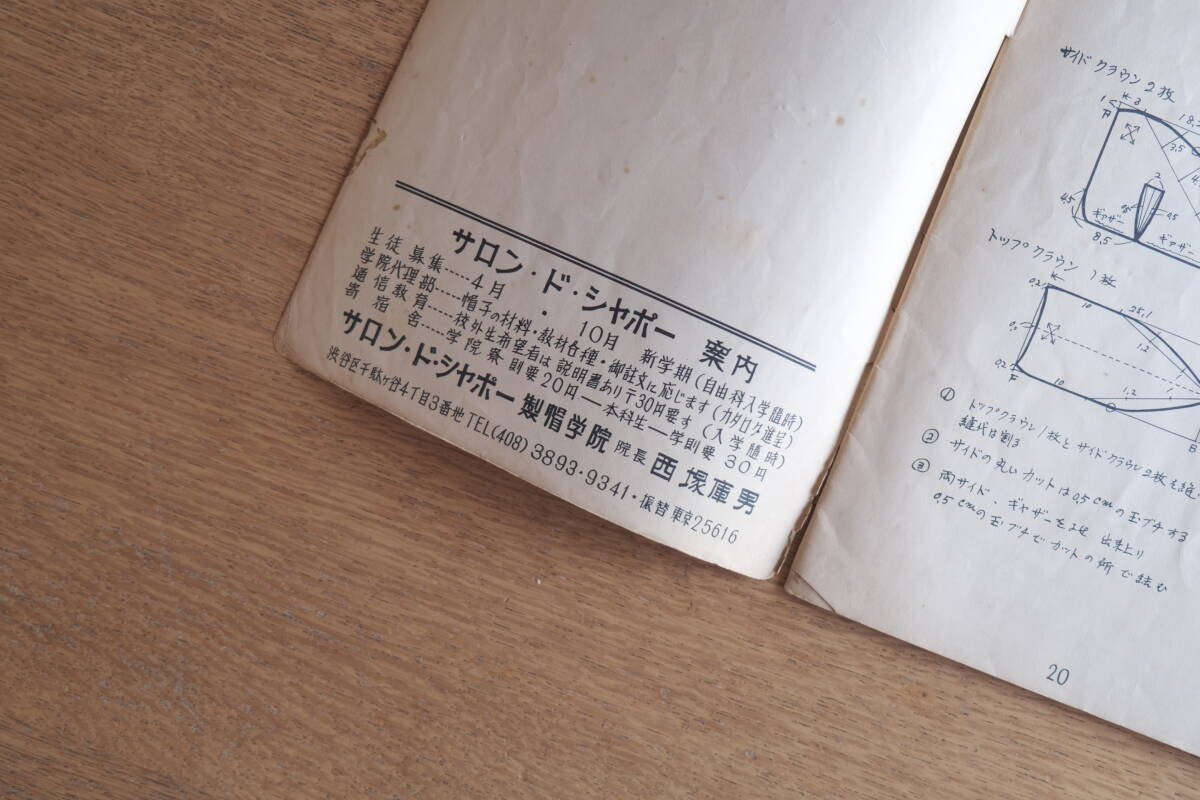 サロン・ド・シャポー 案内
生徒募集……4月・10月 新学期(自由科入学随時)
学院代理部……帽子の材料・教材各種・御註文に応じます(カタログ進呈)
通信教育……校外生希望者は説明書あり〒30円要す(入学随時)
寄宿舎……学院寮則要20円―本科生―学則要30円
サロン・ド・シャポー製帽学院 院長 西塚庫男
渋谷区千駄ヶ谷4丁目3番地 TEL(408)3893・9341・振替東京25616
サイドクラウン2枚
1 3 18.5
A
3.5
4.5
2
0.5
ギャザー ギャザー
8.5
トップクラウン 1枚
0.2 10 25.1
1.2
0.2
F 10 1.2
B
① トップクラウン1枚とサイドクラウン2枚を縫い
縫代は割る
② サイドの丸いカットは0.5cmの玉ブチする
③ 両サイド、ギャザーをよせ 出来上り
0.5cmの玉ブチでカットの所で結む
20